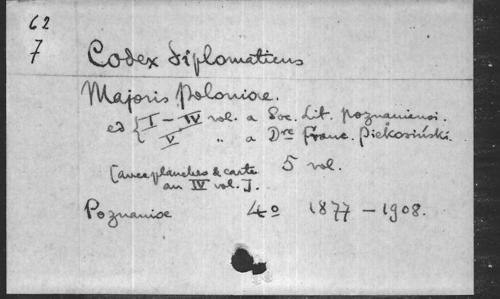 62
7
Codex diplomaticus
Majoris Poloniae.
ed { I – IV vol. a Soc. Lit. Poznaniensi.
V " a Dre Franc. Piekosiński.
5 vol.
[avec planches & carte
au IV vol.].
Poznaniae 4o 1877 – 1908.